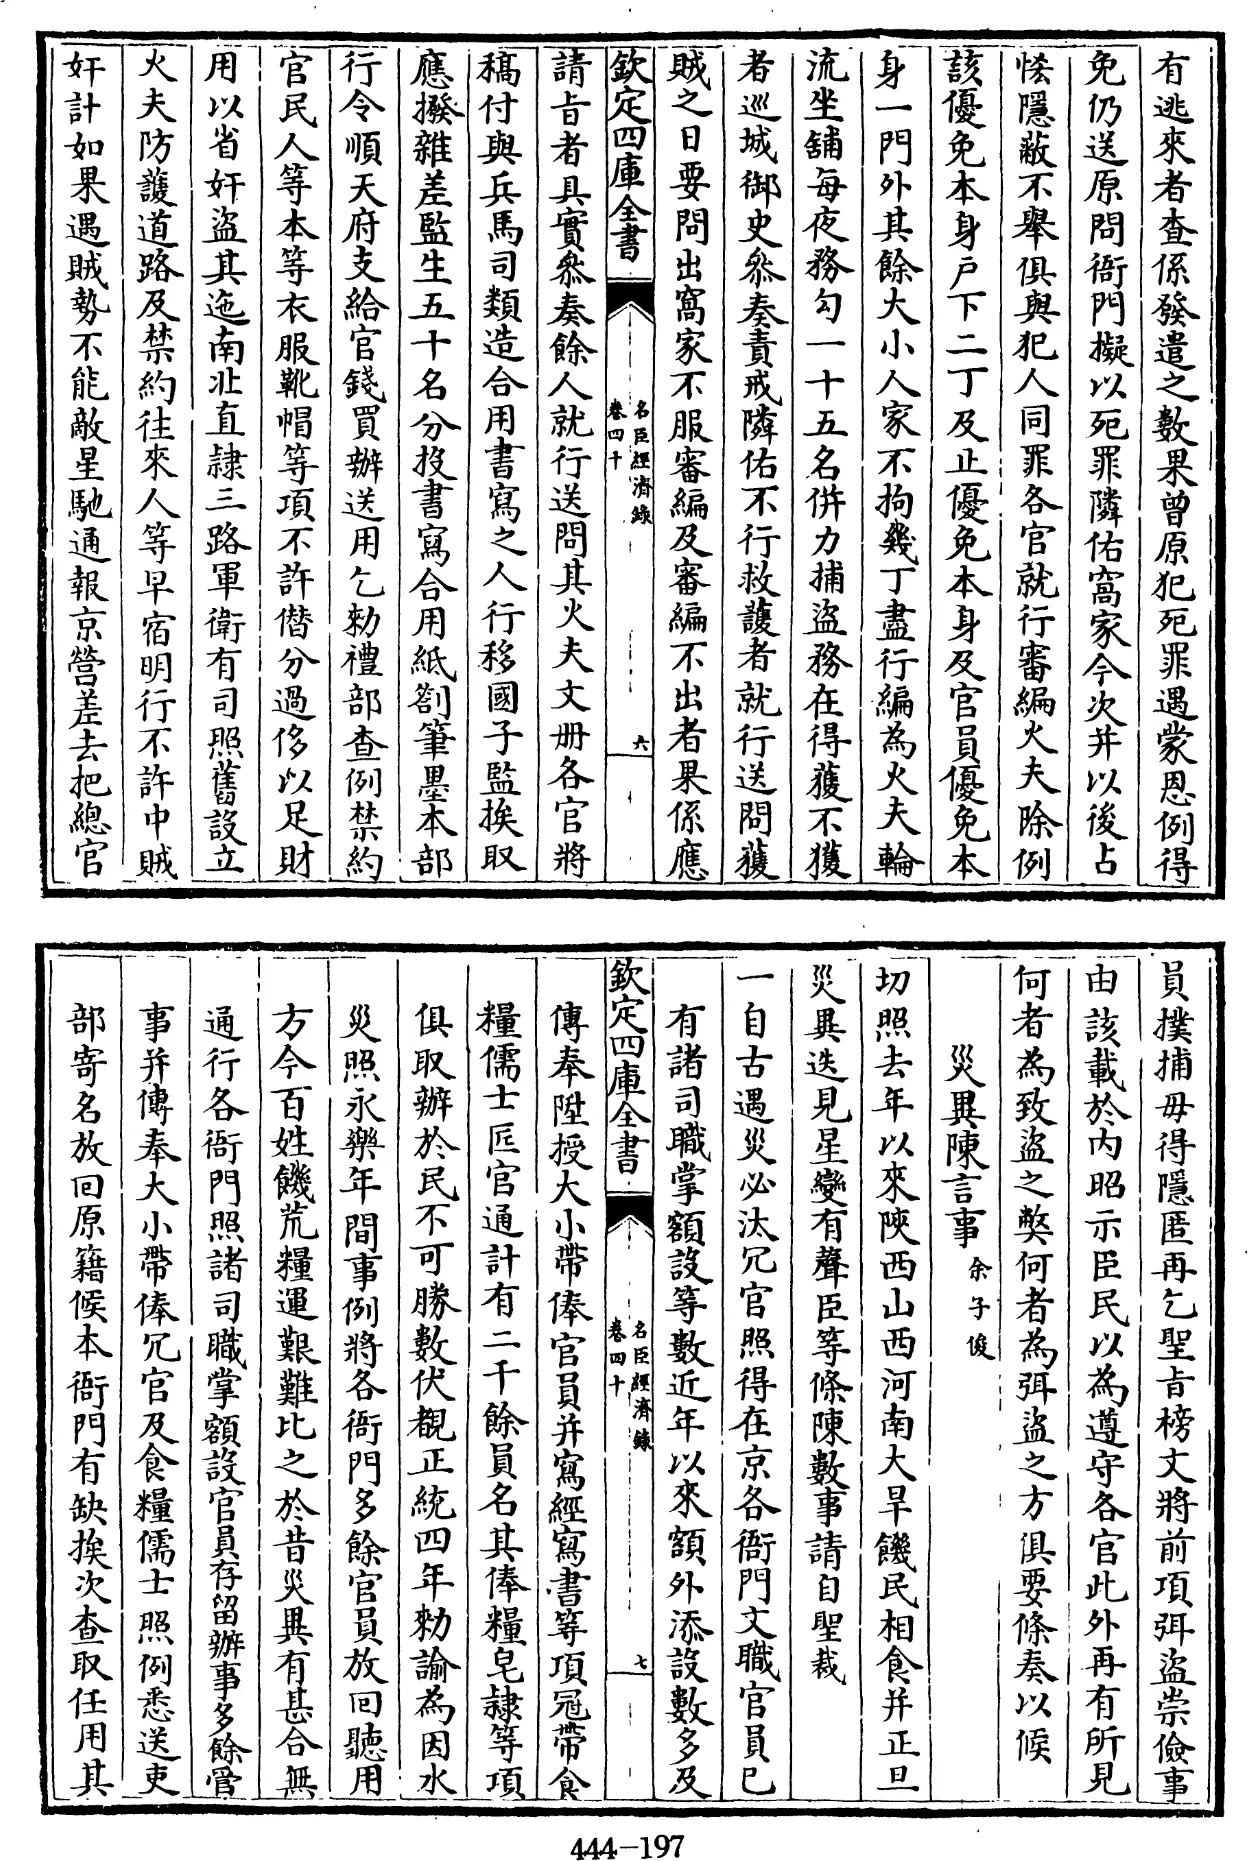 有逃來者查係發遣之數果曾原犯死罪遇蒙恩例得
免仍送原問衙門擬以死罪隣佑窩家今次并以後占
恡隱蔽不舉俱與犯人同罪各官就行審編火夫除例
該優免本身戶下二丁及止優免本身及官員優免本
身一門外其餘大小人家不拘幾丁盡行編為火夫輪
流坐舖每夜務勾一十五名併力捕盜務在得獲不獲
者巡城御史叅奏責戒隣佑不行救護者就行送問獲
賊之日要問出窩家不服審編及審編不出者果係應
欽定四庫全書
名臣經濟錄
卷四十
六
請旨者具實叅奏餘人就行送問其火夫文册各官將
稿付與兵馬司類造合用書寫之人行移國子監挨取
應撥雜差監生五十名分投書寫合用紙劄筆墨本部
行令順天府支給官錢買辦送用乞勑禮部查例禁約
官民人等本等衣服靴帽等項不許僭分過侈以足財
用以省奸盜其迤南北直隸三路軍衛有司照舊設立
火夫防護道路及禁約往來人等早宿明行不許中賊
奸計如果遇賊勢不能敵星馳通報京營差去把總官
員撲捕毋得隱匿再乞聖旨榜文將前項弭盜崇儉事
由該載於內昭示臣民以為遵守各官此外再有所見
何者為致盜之弊何者為弭盜之方俱要條奏以候
災異陳言事 余子俊
切照去年以來陝西山西河南大旱饑民相食并正旦
災異迭見星變有聲臣等條陳數事請自聖裁
一自古遇災必汰冗官照得在京各衙門文職官員已
有諸司職掌額設等數近年以來額外添設數多及
欽定四庫全書
名臣經濟錄
卷四十
七
傳奉陞授大小帶俸官員并寫經寫書等項冠帶食
糧儒士匠官通計有二千餘員名其俸糧皂隸等項
俱取辦於民不可勝數伏覩正統四年勑諭為因水
災照永樂年間事例將各衙門多餘官員放回聽用
方今百姓饑荒糧運艱難比之於昔災異有甚合無
通行各衙門照諸司職掌額設官員存留辦事多餘官
事并傳奉大小帶俸冗官及食糧儒士照例悉送吏
部寄名放回原籍候本衙門有缺挨次查取任用其
444-197